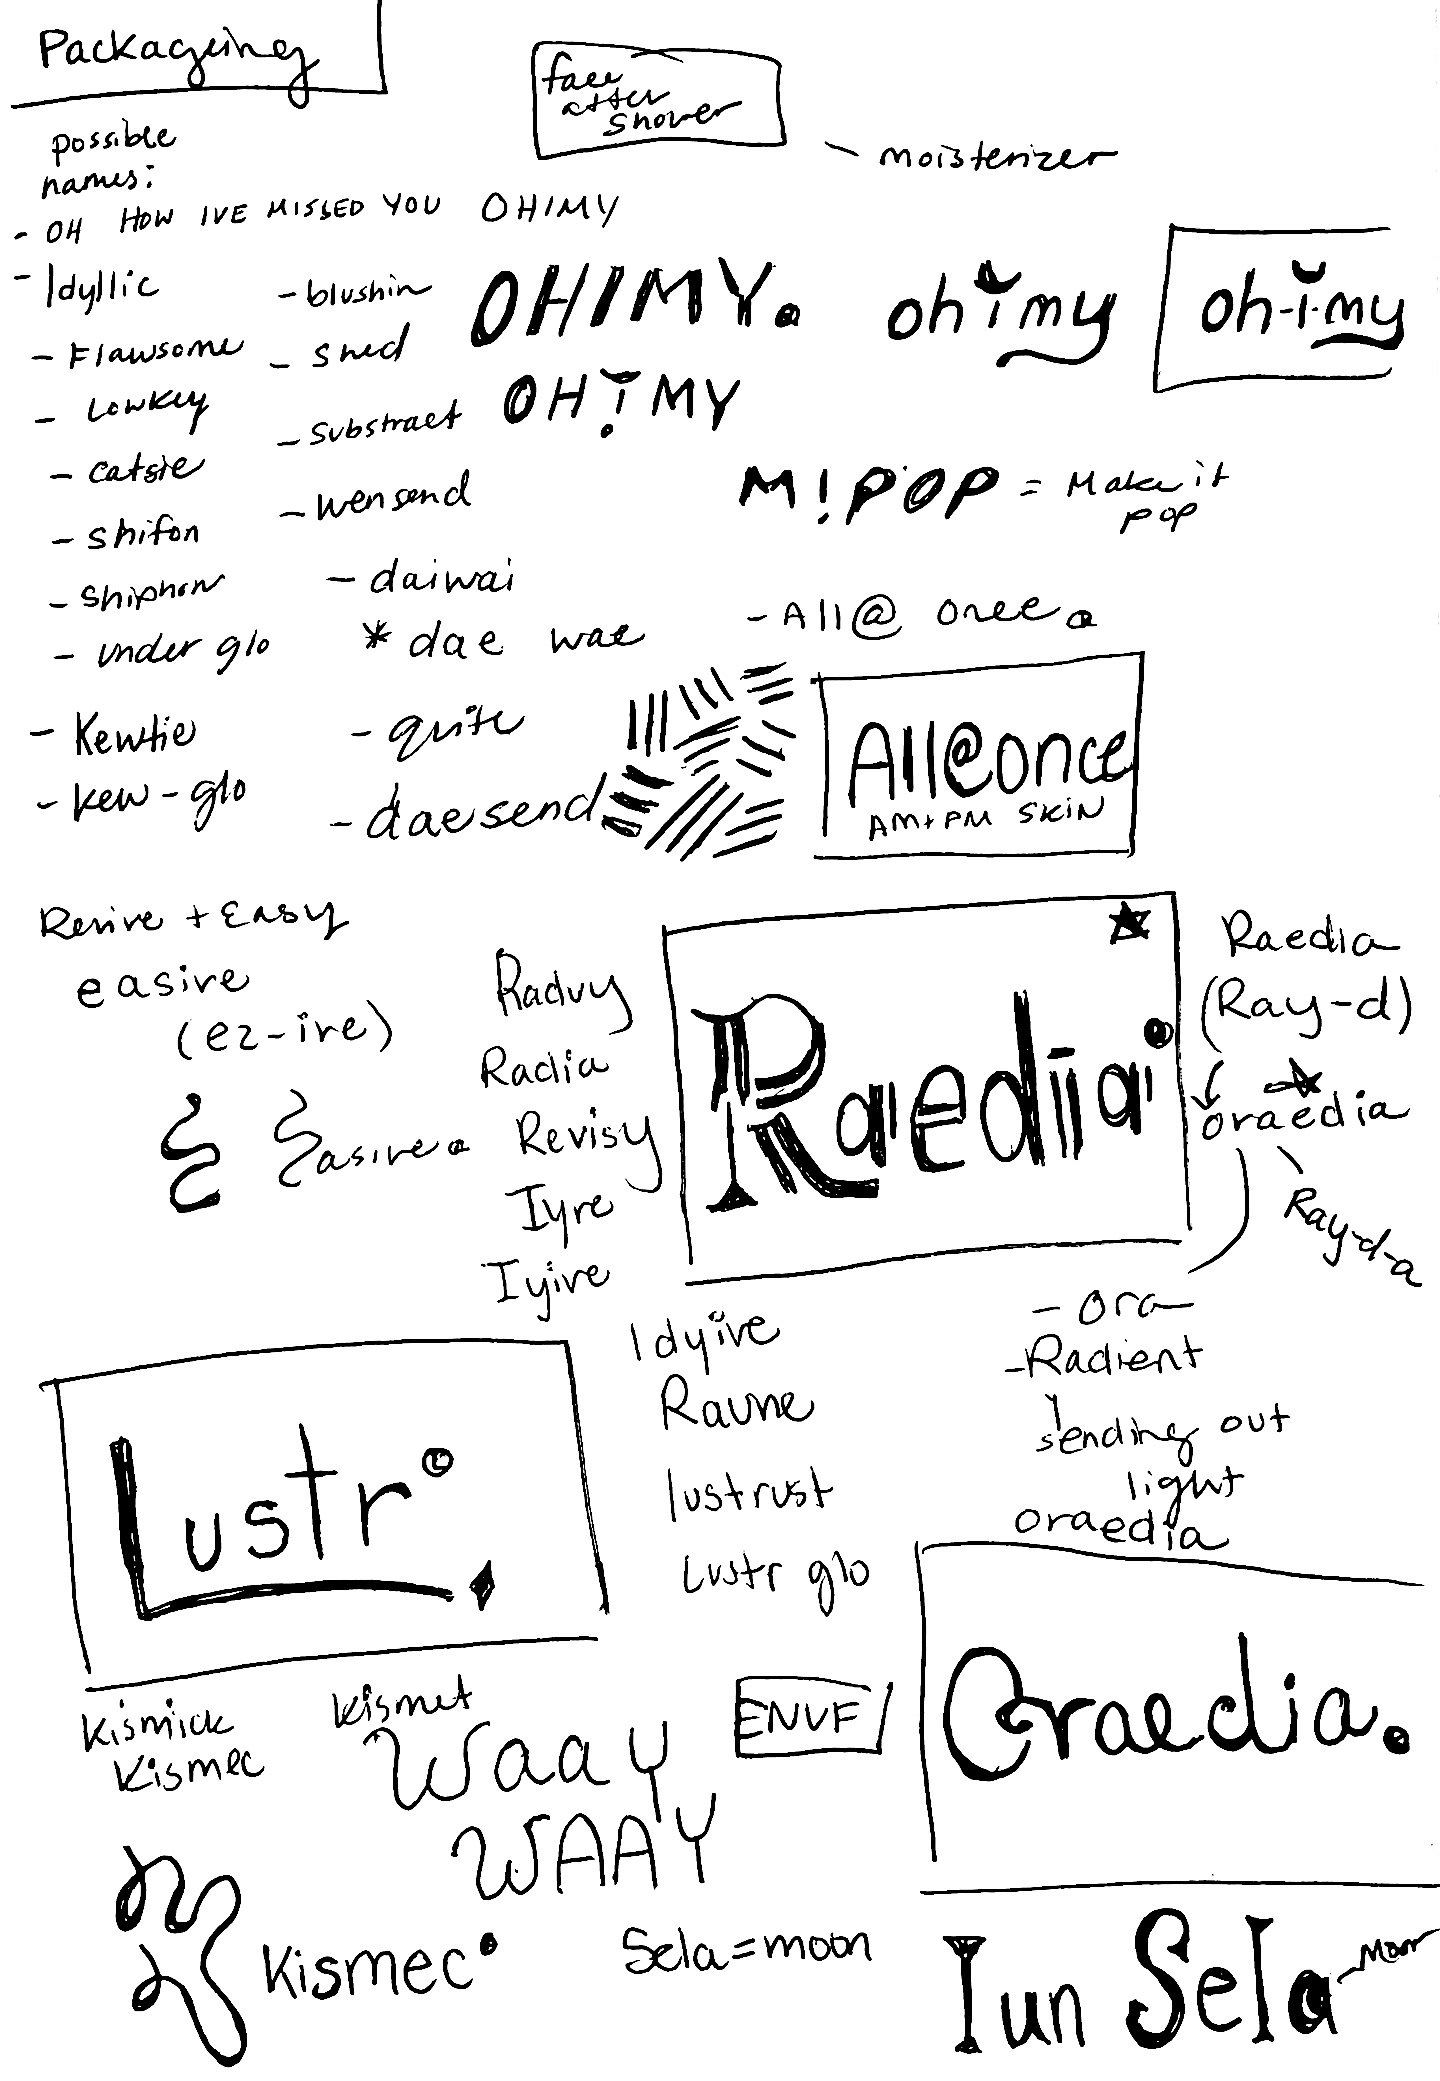 Packageing
face
after
shower
- moisterizer
possible
names:
- OH HOW IVE MISSED YOU OHIMY
- Idyllic
- Flawsome
- Lowkey
- catsie
- shifon
- shiphon
- under glo
- Kewtie
- kew-glo
- blushin
- shed
- substract
- wensend
- daiwai
* dae wae
- quite
- daesend
OHIMY.
OHIMY
ohimy
oh-i-my
M!POP = Make it
pop
- All@ once
All@once
AM+PM SKIN
Revive + Easy
easive
(ez-ive)
Easive
Radvy
Radia
Revisy
Iyre
Iyive
Idyive
Ravne
lustrust
Lustr glo
Raedia
Raedia
(Ray-d)
oraedia
Ray-d-a
- ora
- Radient
sending out
light
oraedia
Lustr
Kismick
Kismec
Kismet
Waay
WAAY
ENVF
Oraedia.
Kismec
Sela=moon
Iun Sela
Moon